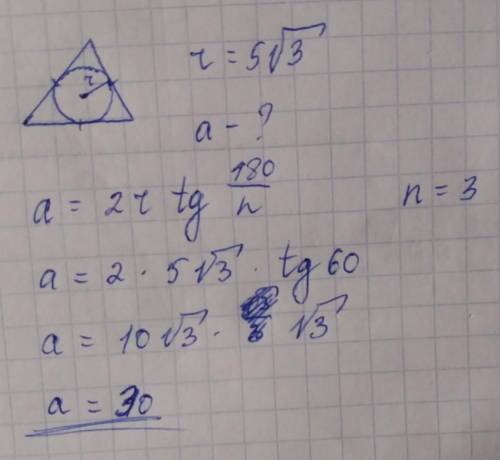 r
r = 5√3
a - ?
a = 2r tg 180/n
n = 3
a = 2 · 5√3 · tg 60
a = 10√3 · √3
a = 30